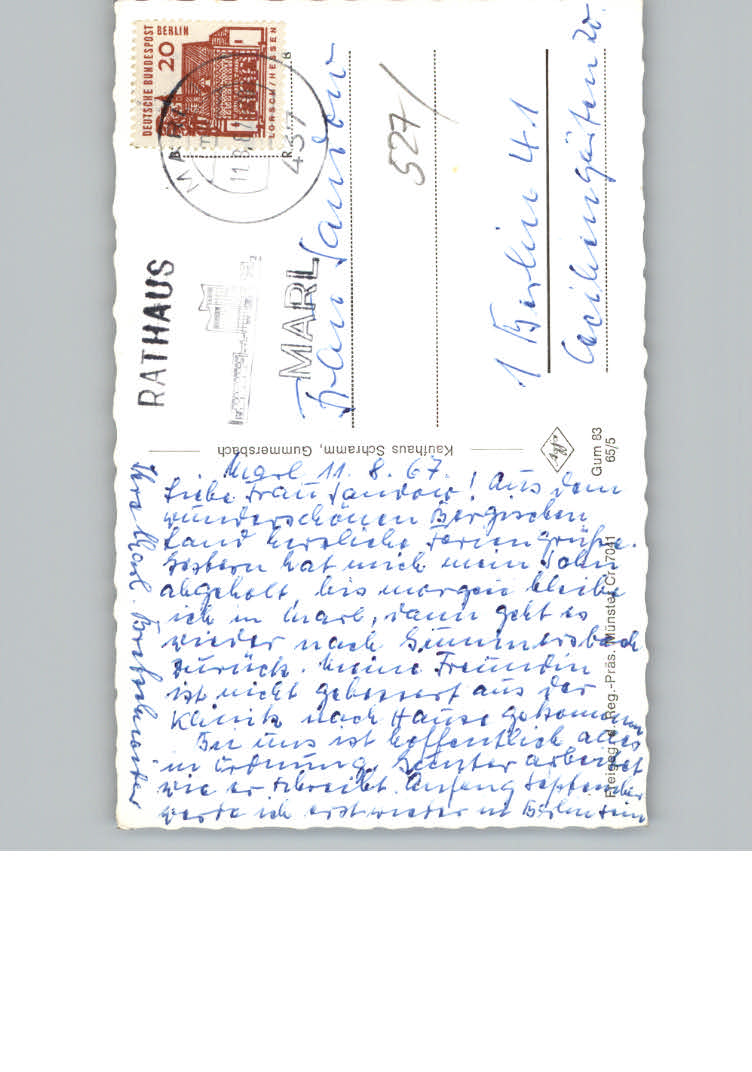 Marl 11. 8. 67.
Liebe Frau Sandow! Aus dem
wunderschönen Bergischen
Land herzliche Feriengrüße.
Gestern hat mich mein Sohn
abgeholt, bis morgen bleibe
ich in Marl, dann geht es
wieder nach Gummersbach
zurück. Meine Freundin
ist nicht gebessert aus der
Klinik nach Hause gekommen
Bei uns ist hoffentlich alles
in Ordnung. Günter arbeitet
wie er schreibt. Anfang September
werde ich erst wieder in Berlin sein
Ihre
DEUTSCHE BUNDESPOST BERLIN
20
LORSCH/HESSEN
11.8.67
437
RATHAUS
MARL
527/
Frau Sandow
1 Berlin 41
Cäciliengärten 20
Kaufhaus Schramm, Gummersbach
Gum 83
65/5
Freigeg. d. Reg.-Präs. Münster Cr 7041